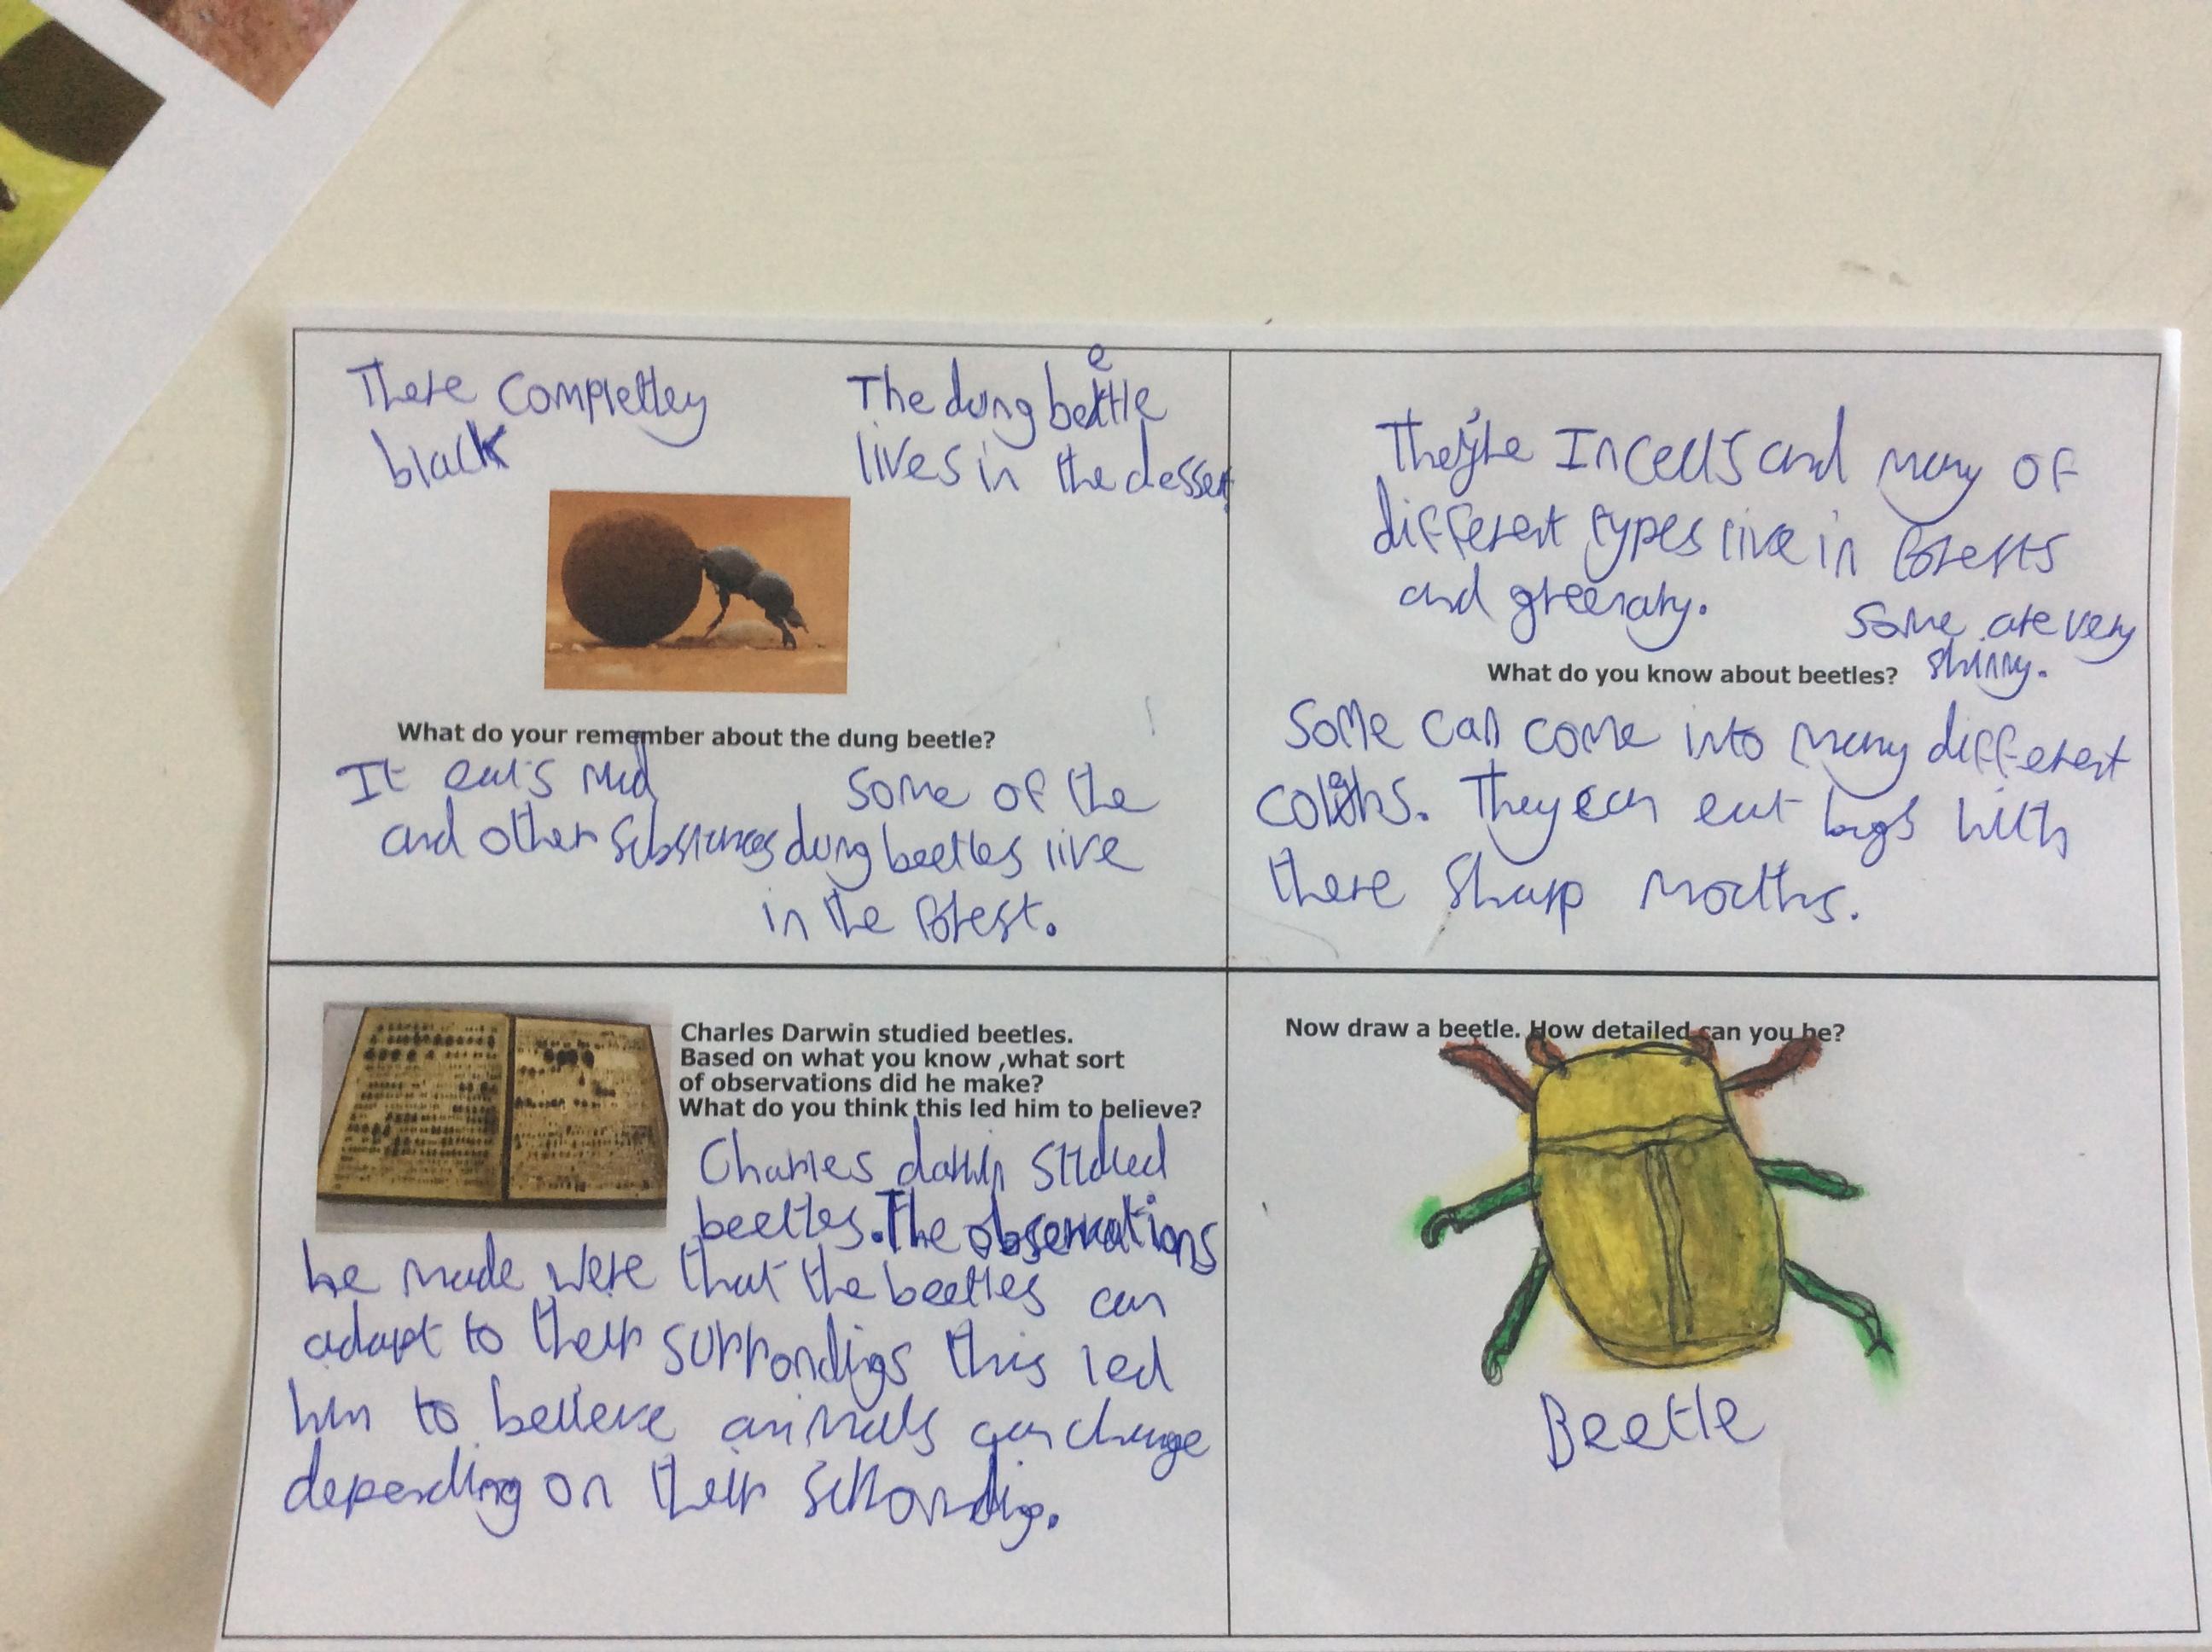 There completley
black
The dung beetle
lives in the dessert
What do your remember about the dung beetle?
It eats mud
and other substances
Some of the
dung beetles live
in the forest.
They're Incects and many of
different types live in forests
and greenary.
Some are very
shinny.
What do you know about beetles?
Some can come into many different
colours. They can eat bugs with
there sharp mouths.
Charles Darwin studied beetles.
Based on what you know ,what sort
of observations did he make?
What do you think this led him to believe?
Charles darwin studied
beetles. The observations
he made were that the beetles can
adapt to their surrondigs this led
him to believe animals can change
depending on their
Now draw a beetle. How detailed can you be?
Beetle